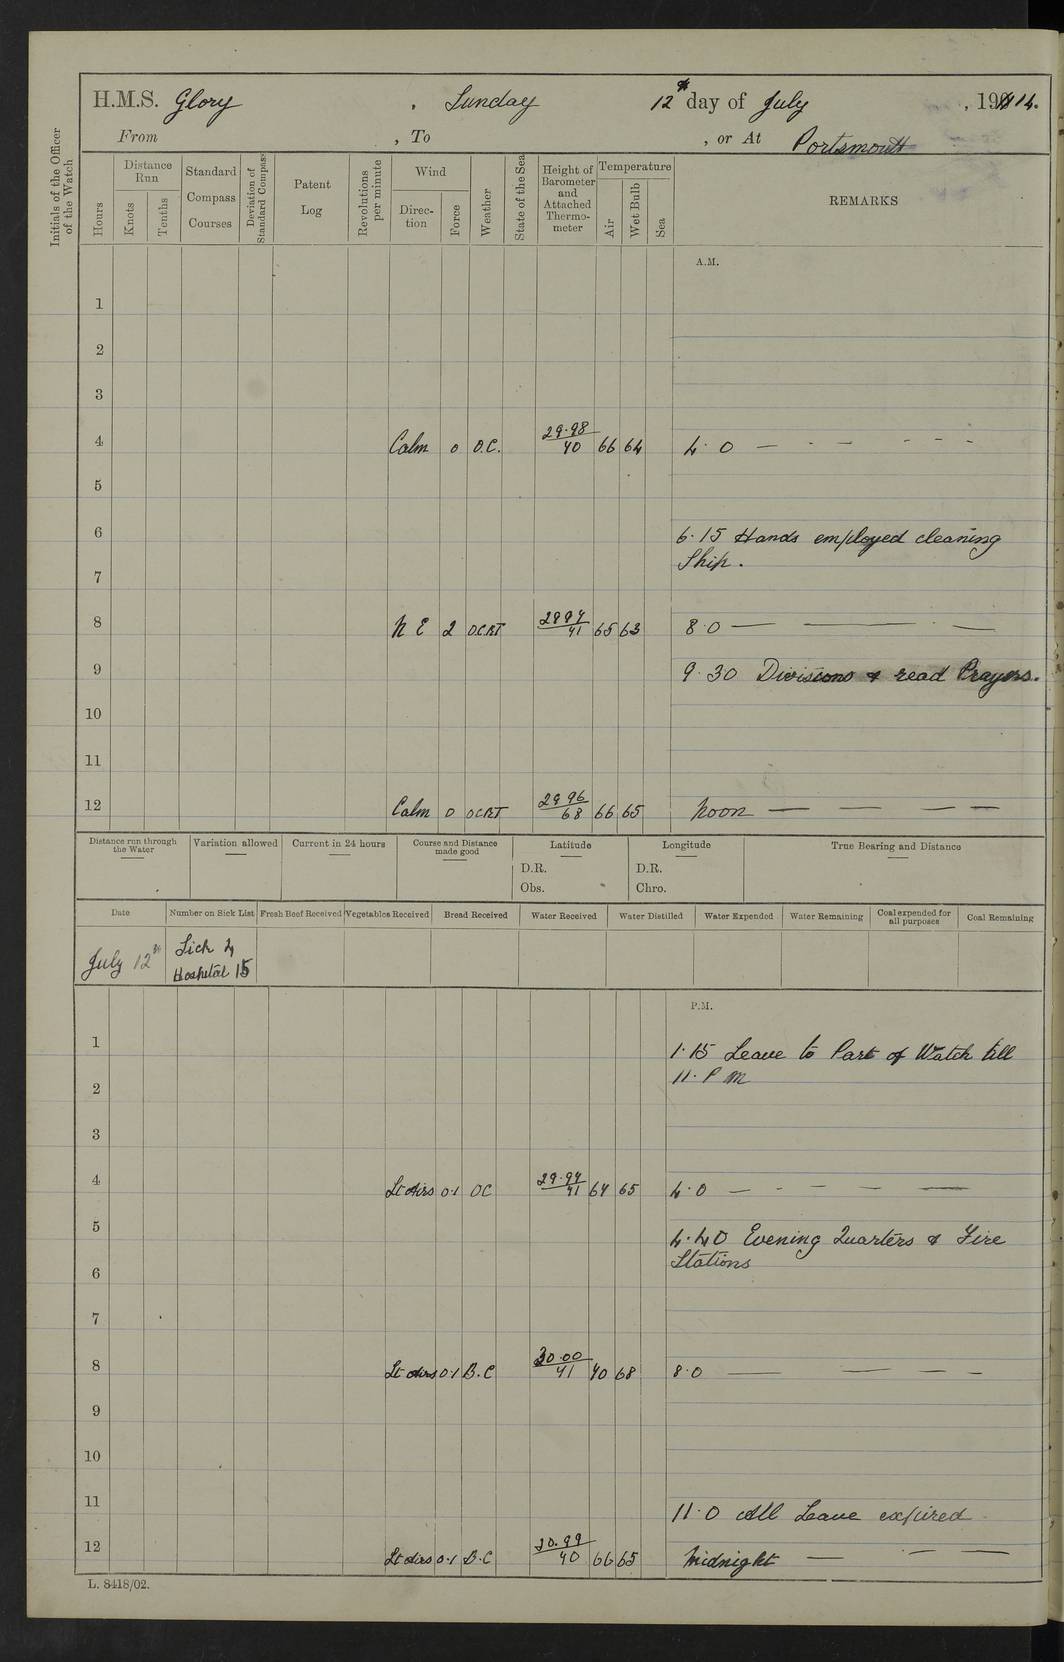 H.M.S. Glory , Sunday 12th day of July , 1914.
From , To , or At Portsmouth
Initials of the Officer of the Watch
Hours
Distance Run
Knots
Tenths
Standard Compass Courses
Deviation of Standard Compass
Patent Log
Revolutions per minute
Wind
Direction
Force
Weather
State of the Sea
Height of Barometer and Attached Thermometer
Temperature
Air
Wet Bulb
Sea
REMARKS
A.M.
1
2
3
4 Calm 0 O.C. 29.98/70 66 64 4.0 — - — - - -
5
6 6.15 Hands employed cleaning
Ship.
7
8 N E 2 O.C.R.T 65 63 8.0 — — —
9 9.30 Divisions & read Prayers.
10
11
12 Calm 0 OCRT 29 96/68 66 65 Noon — — — —
Distance run through the Water
Variation allowed
Current in 24 hours
Course and Distance made good
Latitude
D.R.
Obs.
Longitude
D.R.
Chro.
True Bearing and Distance
Date Number on Sick List Fresh Beef Received Vegetables Received Bread Received Water Received Water Distilled Water Expended Water Remaining Coal expended for all purposes Coal Remaining
July 12th Sick 4
Hospital 15
P.M.
1 1.15 Leave to Part of Watch till
11. P M
2
3
4 Lt Airs 0.1 OC 65 4.0 — - — — — —
5 4.40 Evening Quarters & Fire
Stations
6
7
8 Lt Airs 0.1 B.C 30.00/71 70 68 8.0 — — — —
9
10
11 11.0 All Leave expired
12 Lt Airs 0.1 B.C 66 65 Midnight — — —
L. 8418/02.